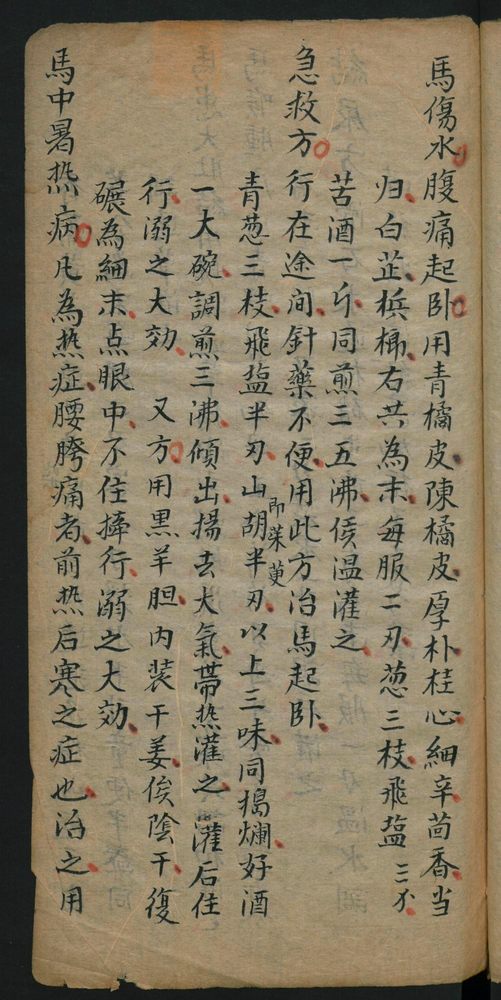 馬傷水腹痛起卧用青橘皮陳橘皮厚朴桂心細辛茴香当
归白芷梹榔右共為末每服二刃葱三枝飛塩三不
苦酒一斤同煎三五沸候温灌之
急救方行在途间針藥不便用此方治馬起卧
青葱三枝飛塩半刃山胡即茱萸半刃以上三味同搗爛好酒
一大碗調煎三沸傾出揚去大氣帶热灌之灌后住
行溺之大効 又方用黑羊胆内装干姜俟陰干復
碾為細末点眼中不住捧行溺之大効
馬中暑热病凡為热症腰胯痛者前热后寒之症也治之用